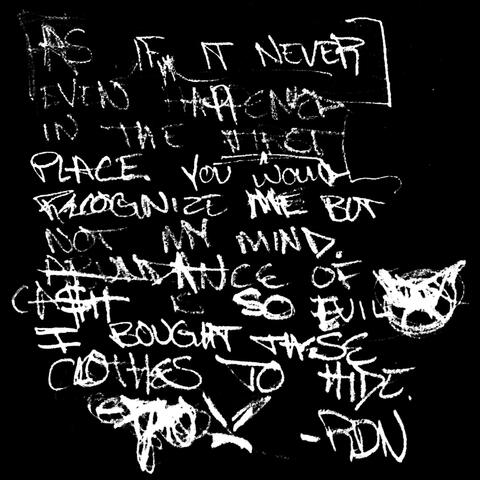 AS IF IT NEVER
EVEN HAPPENED
IN THE FIRST
PLACE. YOU WOULD
RECOGNIZE ME BUT
NOT MY MIND.
ABUNDANCE OF
CA$H IS SO EVIL
I BOUGHT THESE
CLOTHES TO HIDE.
-RDN